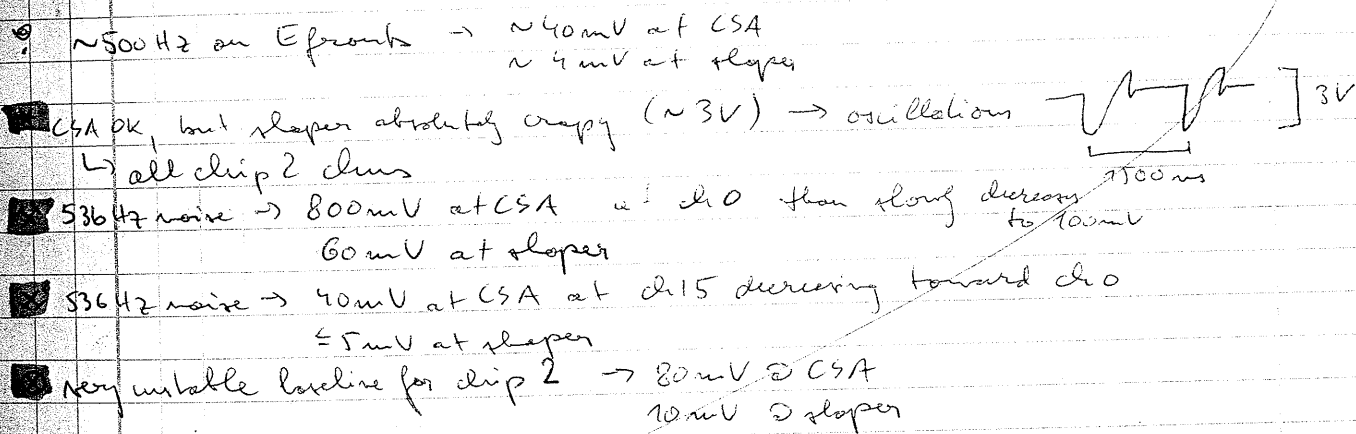 ~500 Hz on Efronts → ~40mV at CSA
~ 4 mV at shaper
CSA OK, but shaper absolutely crapy (~3V) → oscillations ] 3V
↳ all chip 2 chns 1500 ns
536 Hz noise → 800mV at CSA at ch0 than slowly decreasing to 100mV
60 mV at shaper
536 Hz noise → 40mV at CSA at ch15 decreasing toward ch0
≤ 5 mV at shaper
very unstable baseline for chip 2 → 80 mV @ CSA
10 mV @ shaper